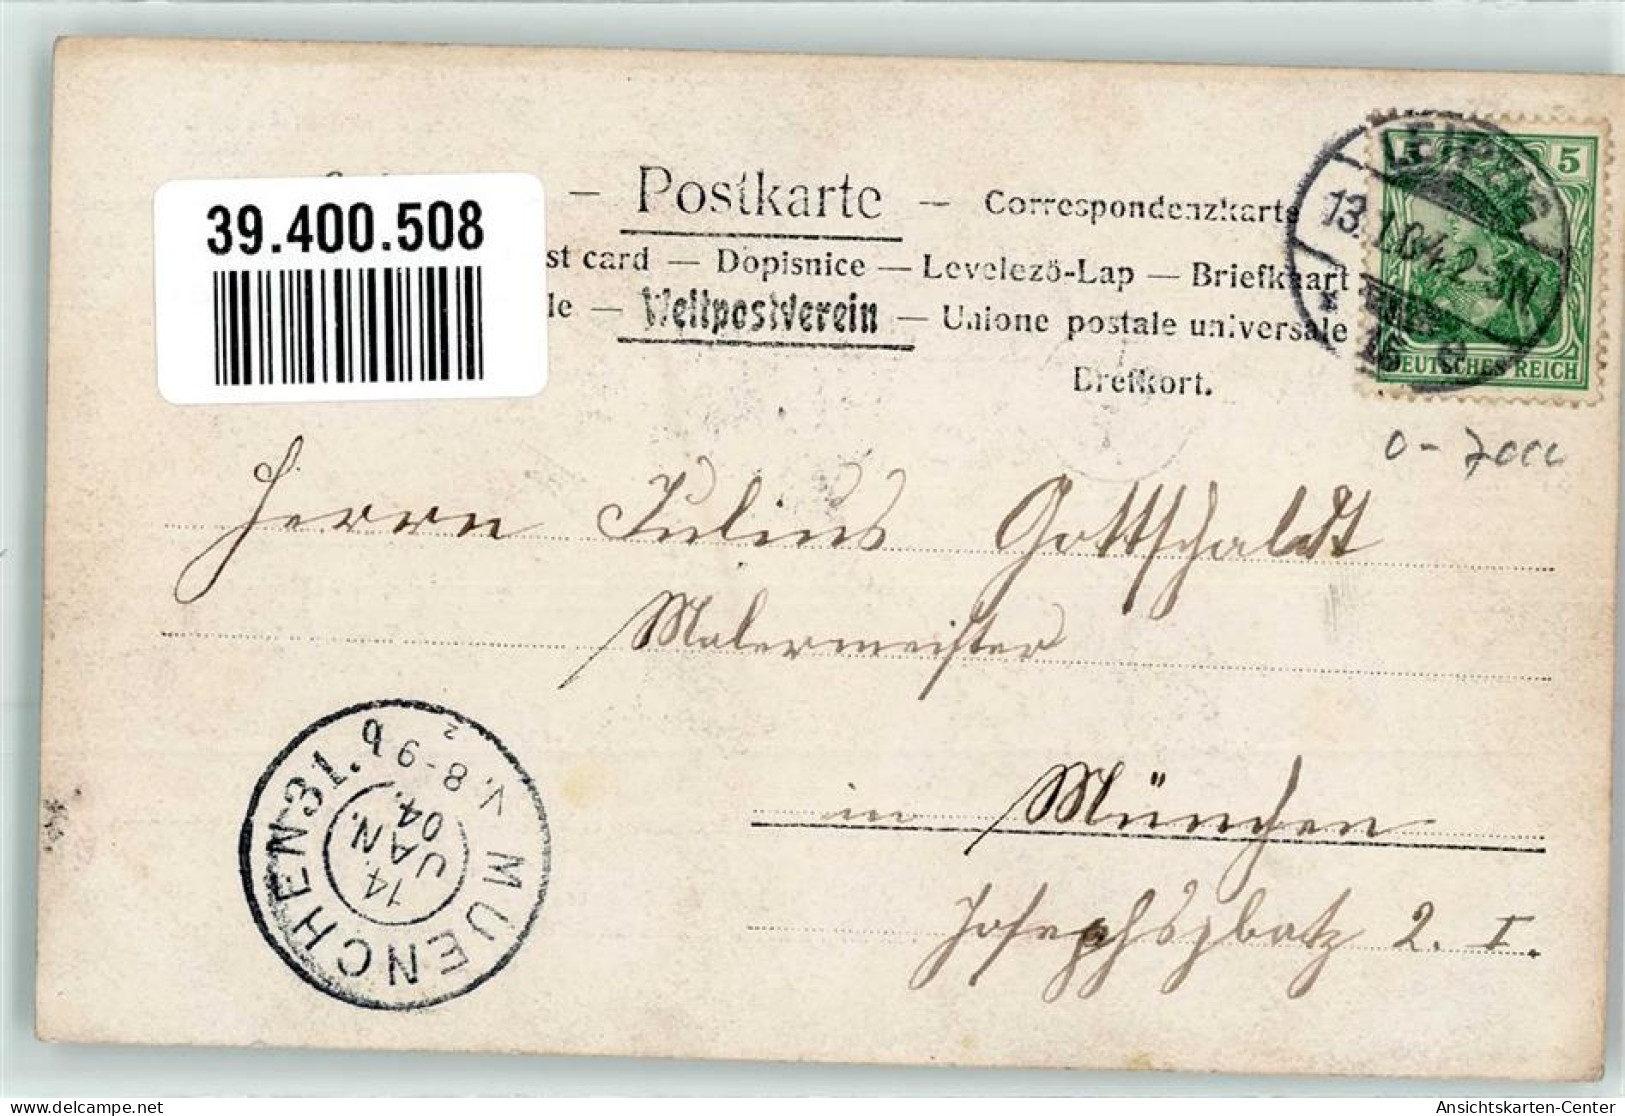 39.400.508
— Postkarte — Correspondenzkarte
st card — Dopisnice — Levelező-Lap — Briefkaart
le — Weltpostverein — Unione postale universale
Brefkort.
LEIPZIG
13.1.04. 2-3N
* 15 e
5 5
DEUTSCHES REICH
Herrn Julius Gottschaldt
Malermeister
in München
Josephsplatz 2. I.
MUENCHEN 31. b
V. 8-9
14.
JAN.
04.
Ansichtskarten-Center